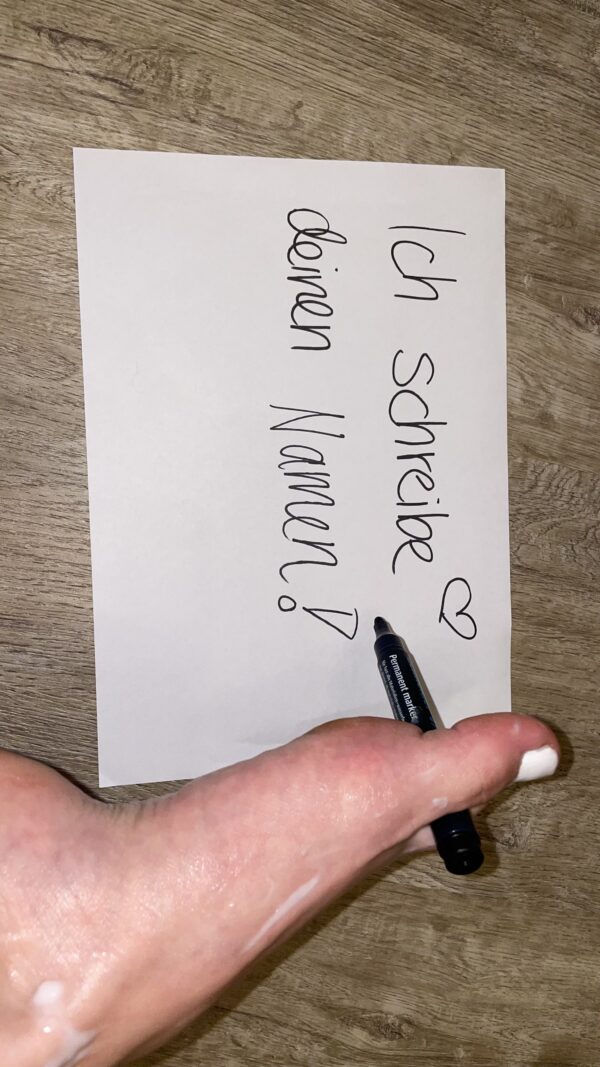 Ich schreibe ♡
deinen Namen!
Permanent marker